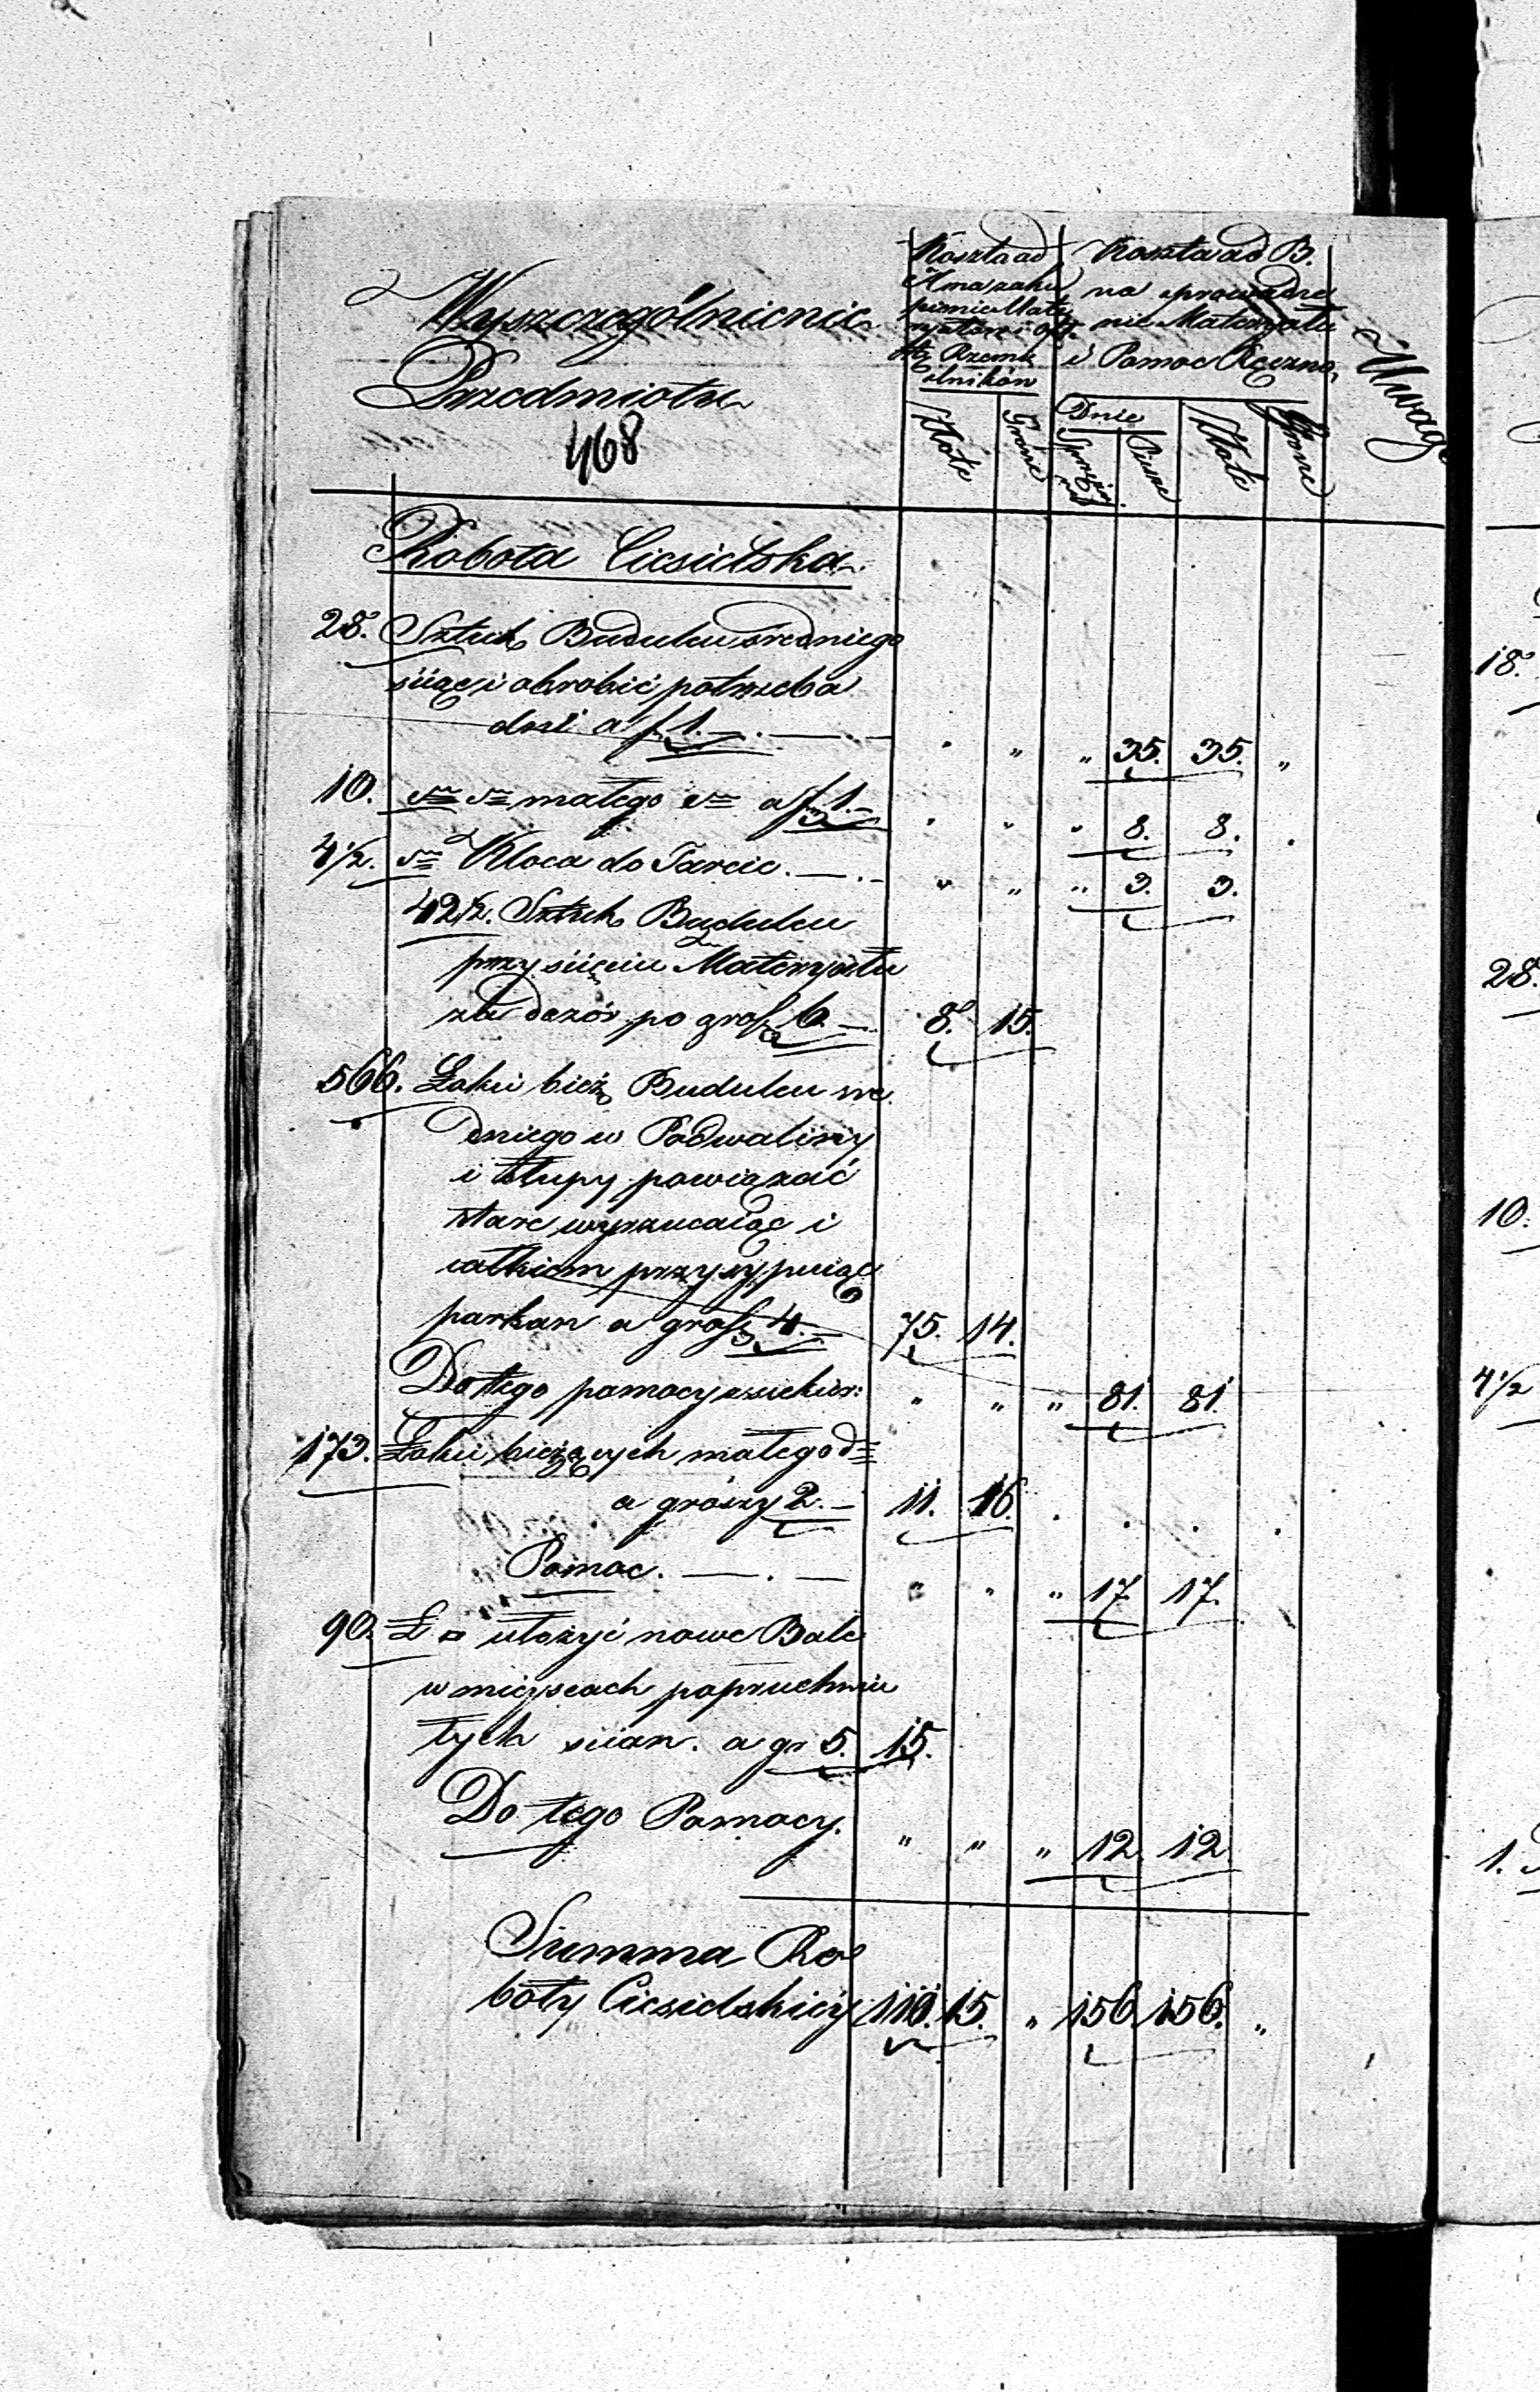 Wyszczególnienie
Przedmiotu
468
Koszta ad
A na zaku
pienie Mate
ryałów i opł.
tę Rzemie
ślników
Złote
Grosze
Koszta ad B.
na sprowadze
nie Materyału
i Pomoc Ręczna
Dnie
Sprzęż
Piesze
Złote
Grosze
Uwagi
Robota Ciesielska
28. Sztuk Budulcu średniego
ściąć i obrobić potrzeba
dni a f 1. — . — „ „ „ 35. 35. „
10. dto dto małego dto a f 1. — „ „ „ 8. 8. .
4 1/2. dto Kloca do Tarcic. — . - „ „ „ 3. 3.
42 1/2. Sztuk Budulcu
przy ścięciu Materyału
za dozór po gros 6. — 8. 15.
566. Łokci bież Budulcu śre
dniego w Podwaliny
i słupy powiązać
stare wyrzucaiąc i
całkiem przysypuiąc
parkan a grosz 4. — 75. 14.
Do tego pomocy „ „ „ 81. 81.
173. Łokci bieżących małego dto
a groszy 2. — 11. 16. . . . .
Pomoc. — . — „ „ „ 17. 17.
90. Ł □ ułożyć nowe Bale
w mieyscach popruchnia
łych ścian. a gr 5. 15.
Do tego Pomocy. „ „ „ 12. 12
Summa Ro
boty Ciesielskiey 110. 15. „ 156. 156. „
18.
28.
10.
4 1/2
1.